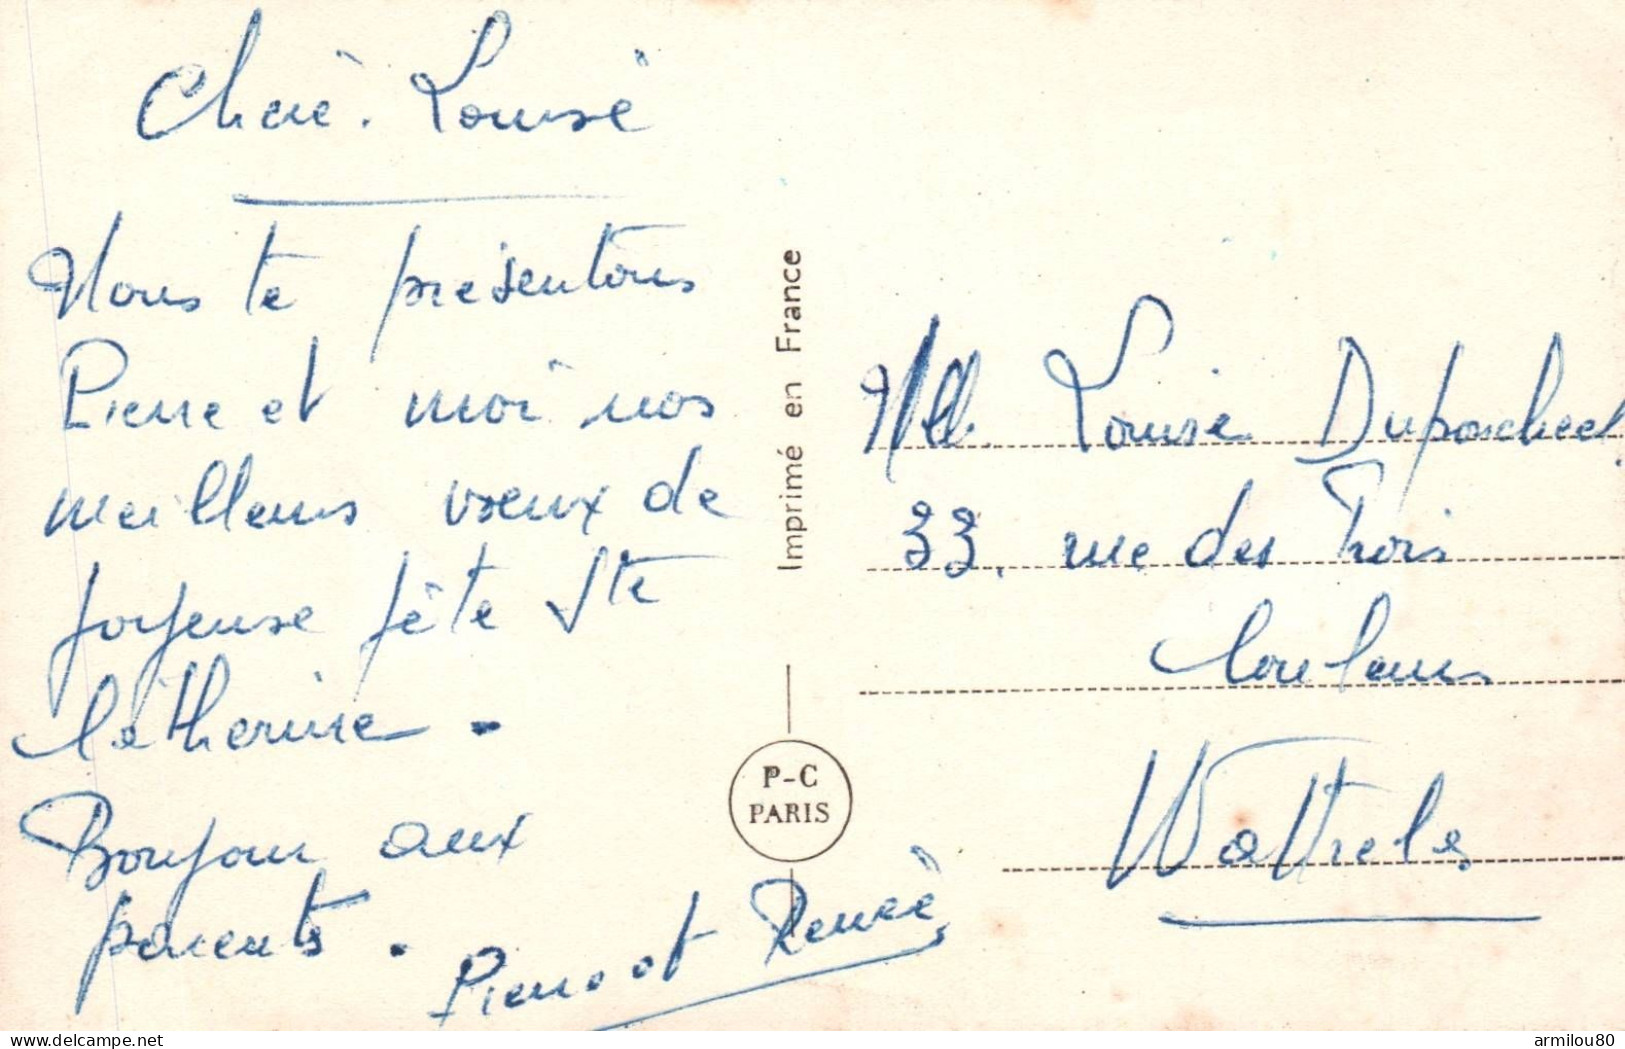 Chère Louise
Nous te présentons
Pierre et moi nos
meilleurs vœux de
joyeuse fête Ste
Catherine.
Bonjour aux
parents.
Pierre et Renée
Imprimé en France
P-C
PARIS
Mlle Louise
33, rue des Trois
Couleurs
Wattrelos
www.delcampe.net
armilou80